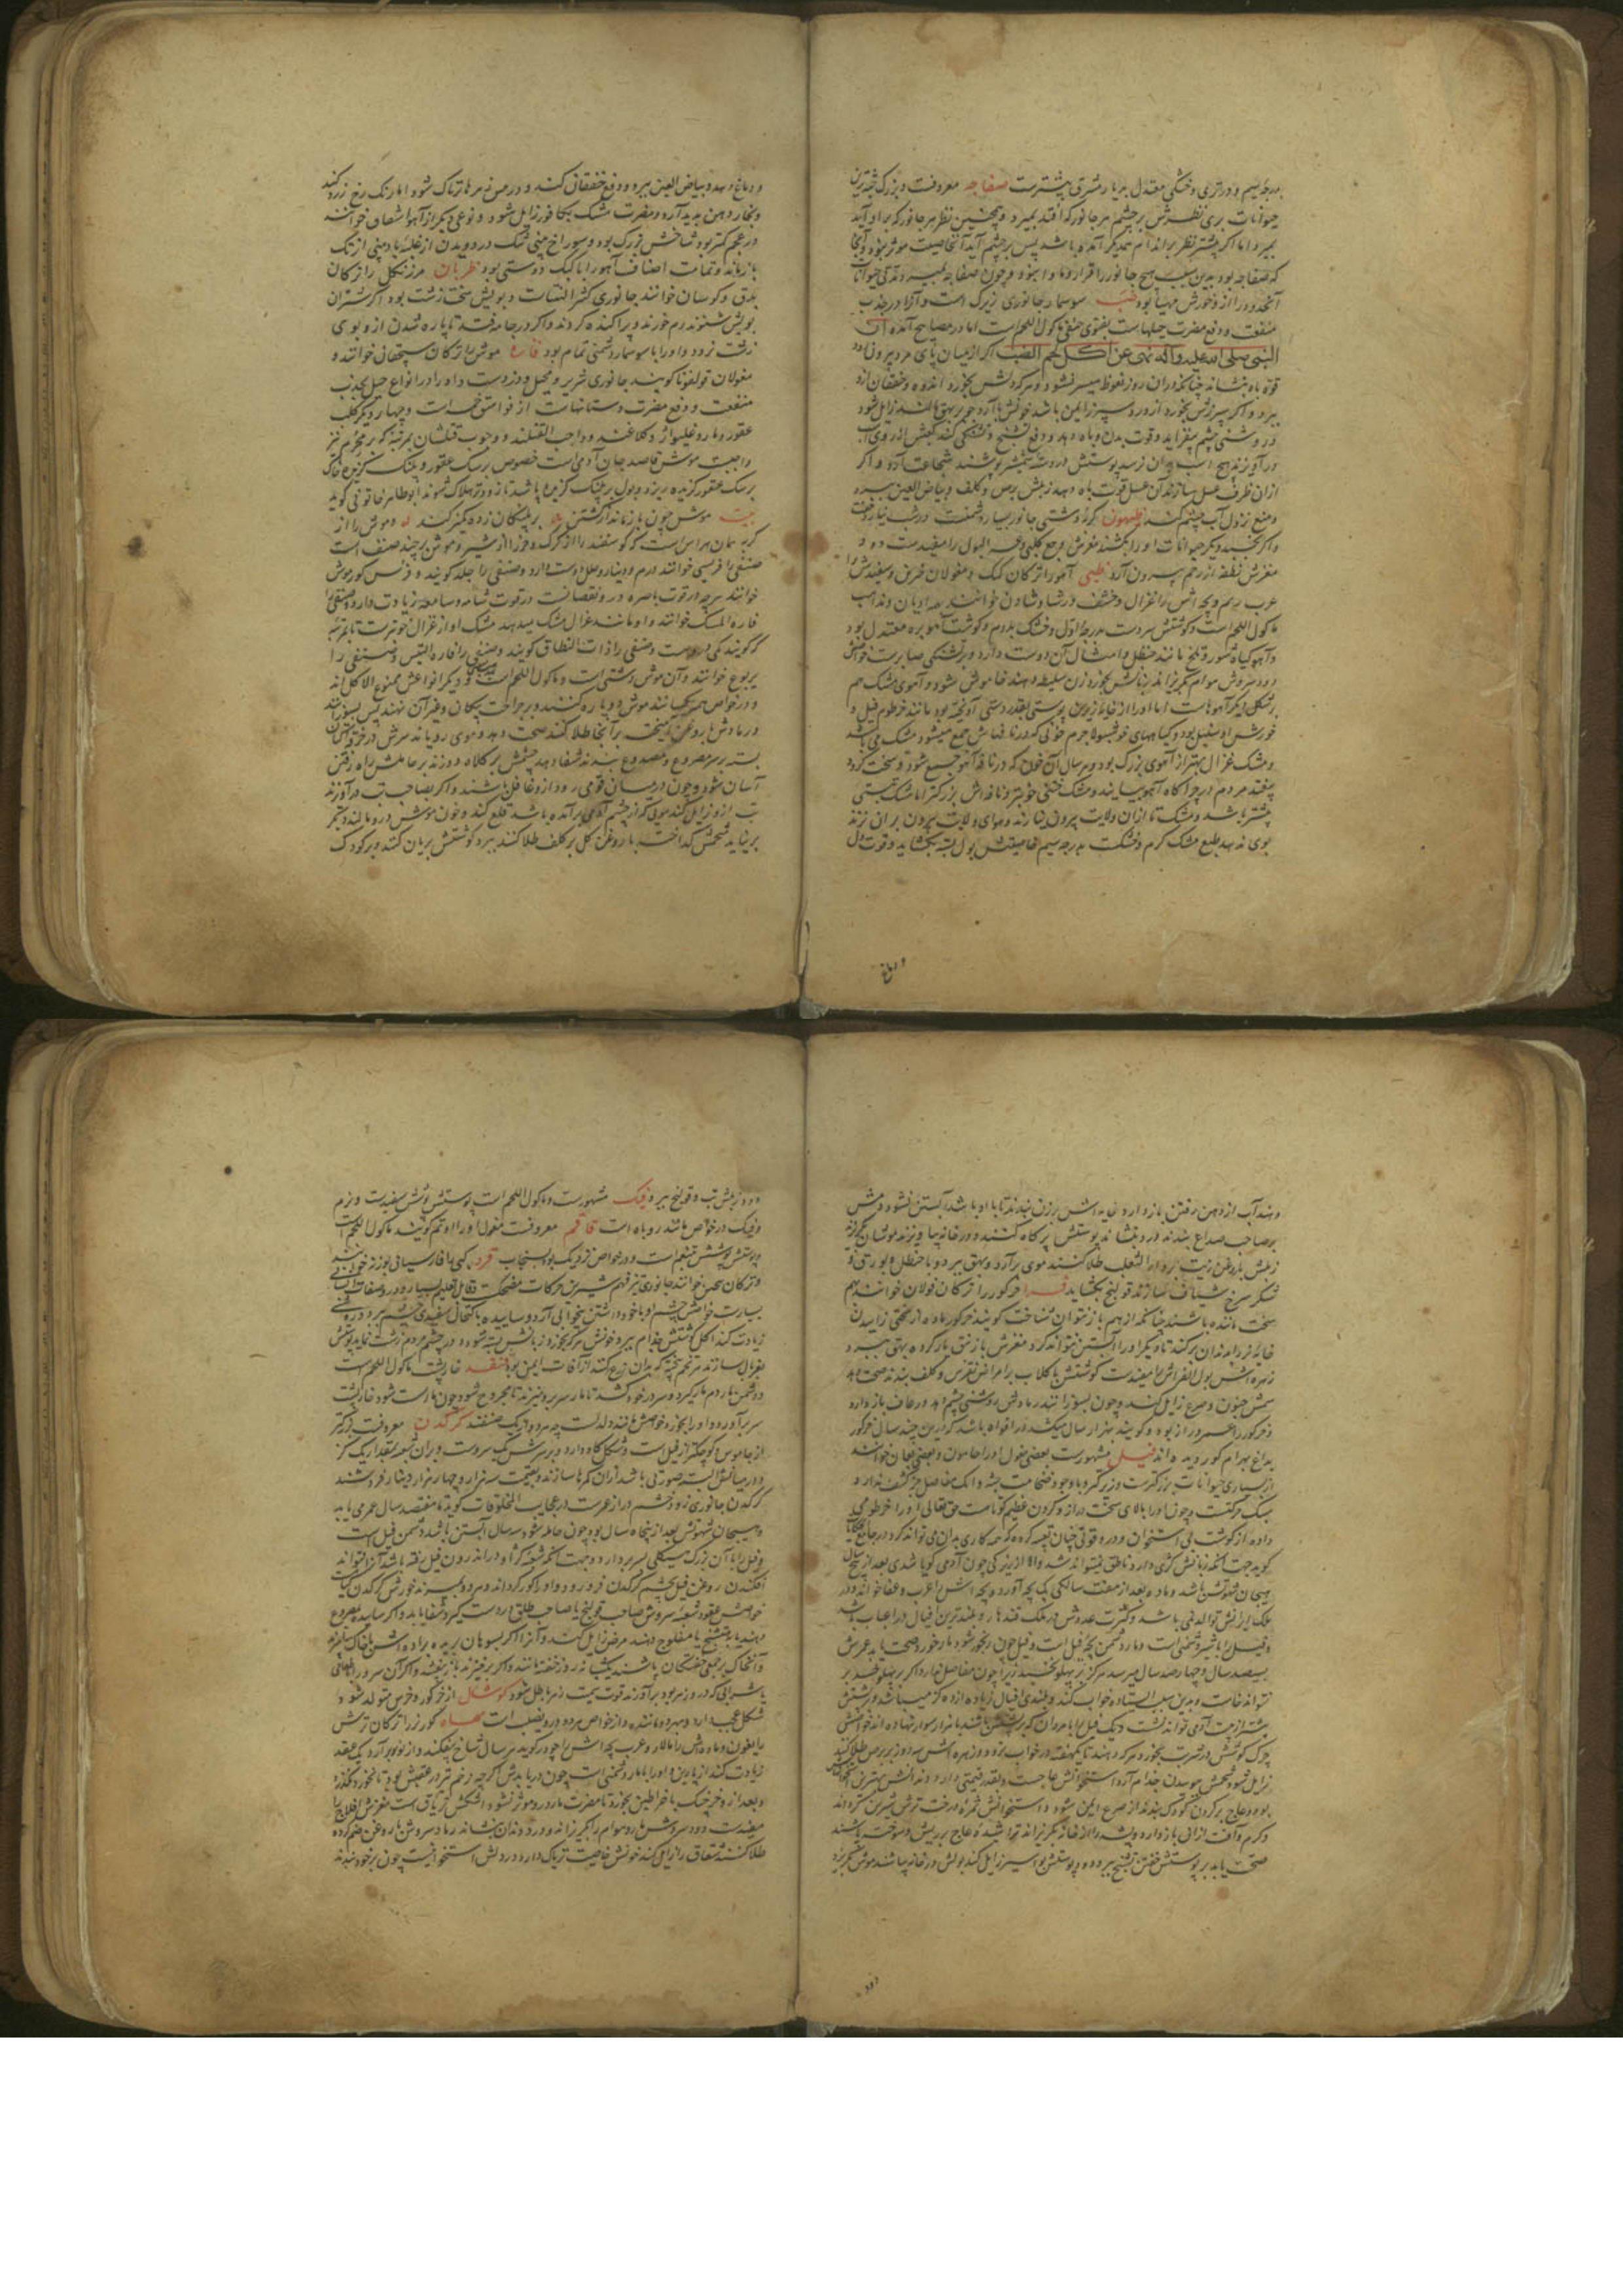 بدرجه سیم و در تری و خشکی معتدل بدیار مشرق بیشترست صفاجه معروفست و بزرگ جثه‌ترین
حیوانات بری نظرش بر چشم هر جانور که افتد بمیرد و همچنین نظر هر جانور که برو آید
بمیرد اما اگر پیشتر نظر بر اندام یکدیگر آمده باشد پس بر چشم آید آن خاصیت موثر نبود و آنجا
که صفاجه بود بدین سبب هیچ جانور را قرار و ماوا نبود و چون صفاجه بمیرد مدتی حیوانات
آنحدود را از و خورش مهیا بود ضب سوسمار جانوری زیرک است و آنرا در جذب
منفعت و دفع مضرت حیلهاست بفتوی حنفی ماکول اللحم است اما در مصابیح آمده ان
النبی صلی الله علیه و آله نهی عن اکل لحم الضب اگر از میان پای مرد بیرون
قوة باه بنشاند چنانکه در آن روز نعوظ میسر نشود و هر که دلش بخورد اندوه و خفقان ازو
ببرد و اگر سپرزش بخورد از درد سپرز ایمن باشد خونش با آرد جو بر بهق مالند زایل شود
و روشنی چشم بیفزاید و قوت بدن و باه دهد و دفع تشنج و تشنگی کند کعبش از روی اسب
درآویزند هیچ اسب بدان نرسد پوستش در دسته شمشیر پوشند شجاعت آرد و اگر
ازان ظرف عسل سازند آن عسل قوت باه دهد زبلش برص و کلف و بیاض العین ببرد
و منع نزول آب چشم کند
و اگر بخسبد دیگر حیوانات او را بکشند مغزش وجع کلیه و عسر البول را مفیدست دود
مغزش نطفه از رحم بیرون آرد ظبی آهو را ترکان کیک و مغولان خوانند
عرب ریم و بچه اش را غزال و خشف و رشا و شادن خوانند
ماکول اللحم است و گوشتش سردست بدرجه اول و خشک بدوم و گوشت آهو بره معتدل بود
و آهو گیاه شور و تلخ مانند حنظل و امثال آن دوست دارد و بر تشنگی صابرست
دود سروش هوام بگریزاند زبانش بخورد زن سلیطه دهند خاموش شود و آهوی مشک هم
بر شکل دیگر آهوهاست اما او را از خایه زیرین پوستی بقدر دستی آویخته بود مانند خرطوم فیل و
خورش او سنبل بود و گیاههای خوشبو لاجرم خونی که در نافهاش جمع میشود مشک می باشد
و مشک غزال بهتر از آهوی بزرگ بود و هر سال آن خون که در نافه آهو جمع شود و سخت گردد
بیفتد مردم در چراگاه آهو بیابند و مشک ختنی خوبتر و نافه اش بزرگتر اما مشک تبتی
بیشتر باشد و مشک تا ازان ولایت بیرون نیارند و هوای ولایت بیرون بران نزند
بوی ندهد طبع مشک گرم و خشکست بدرجه سیم خاصیتش بول بسته بگشاید و قوت دل
و دماغ
و دماغ دهد و بیاض العین ببرد و دفع خفقان کند و در معونت زهرها تریاک شود اما رنگ رخ زرد کند
و بخار دهن بدید آرد و مضرت مشک بکافور زایل شود و نوعی دیگر از آهوا شعاف خوانند
در عجم کمتر بود شاخش بزرگ بود و سوراخ بینی تنگ در دویدن از غلبه باد بینی از تک
باز ماند و تمامت اصناف آهو را با کبک دوستی بود ظربان مرزنکل را ترکان
بلدق و کوسان خوانند جانوری کثیر النتات و بویش سخت زشت بود اگر شتران
بویش شنوند رم خورند و پراکنده گردند و اگر در جامه فتد تا پاره شدن ازو بوی
زشت نرود و او را با سوسمار دشمنی تمام بود فاره موش را ترکان سیچقان خوانند و
مغولان قولغونا گویند جانوری شریر و محیل و دزدست و او را در انواع حیل بجذب
منفعت و دفع مضرت دستانهاست از فواسق خمسه است و چهار دیگر کلب
عقور و مار و غلیواژ و کلاغند و واجب القتلند و وجوب قتلشان بمرتبه که بر محرم نیز
واجبست موش قاصد جان آدمی است خصوص بر سگ عقور و پلنگ گزیده خاک
بر سگ عقور گزیده ریزد و بول بر پلنگ گزیده پاشد تا زودتر هلاک شوند ابوطاهر خاتونی گوید
بیت موش چون باز ماند از کشتن بر پلنگان زده کمیز کند و موش را از
گربه همان هراس است که گوسفند را از گرگ و خر را از شیر و موش بر چند صنف است
صنفی را فریسی خوانند درم و دینار و حلی دوست دارد و صنفی را جلد گویند و فرس کورموش
خوانند هر چه در قوت باصره در و نقصانست در قوت شامه و سامعه زیادت دارد و صنفی را
فارة المسک خوانند و او مانند غزال مشک میدهد مشک او از غزال خوبترست تا بمرتبه
که گویند کمی در دست و صنفی را ذات النطاق گویند و صنفی را فارة البیش و صنفی را
یربوع خوانند و آن موش دشتی است و ماکول اللحم است و دیگر انواعش ممنوع الاکل اند
و در خواص همه یکسانند موش دو پاره کنند و بر جراحت پیکان و غیر آن نهند
و رمادش با روغن آمیخته بر آنجا طلا کنند صحت دهد و موی رویاند سرش در خرقه کتان
بسته بر سر مصروع و مصدوع بندند شفا دهد چشمش بر کلاه دوزند بر حاملش راه رفتن
آسان شود و چون در میان قومی رود ازو غافل باشند و اگر بصاحب تب درآویزند
تب ازو زایل کند مویی که از چشم آدمی برآمده باشد قلع کند و خون موش درو مالند دیگر
برنیاید شحمش گداخته با روغن گل بر کلف طلا کنند ببرد گوشتش بریان کنند و بر کودک
دهند آب از دهن رفتن بازدارد و خایه اش بر زن بندند تا با او باشد آبستن نشود دمش
بر صاحب صداع بندند درد بنشاند پوستش پر کاه کنند و در خانه بیاویزند موشان بگریزند
زبلش با روغن زیت بر داء الثعلب طلا کنند موی برآرد و بهق ببرد و با حنظل و بوره و
شکر سرخ شیاف سازند قولنج بگشاید فرا خرگور را ترکان قولان خوانند بهم
سخت ماننده باشند چنانکه از هم باز نتوان شناخت گویند خرگور ماده از سختی زاییدن
خایه نر بدندان برکند تا دیگر او را آبستن نتواند کرد مغزش با زنبق بار کرده بهق ببرد و
زهره اش بول الفراش را مفیدست گوشتش با گلاب بر امراض نقرس و کلف بندند صحت دهد
سمش جنون و صرع زایل کند و چون بسوزانند رمادش روشنی چشم دهد و رعاف باز دارد
و خرگور را عمر دراز بود و گویند بهزار سال میکشد در افواه باشد که درین چند سال خرگور
بداغ بهرام گور دیده اند فیل مشهورست بعضی مغول او را حامون و بعضی یعان خوانند
از بسیاری حیوانات بزرگترست و زیرکتر و با وجود ضخامت جثه و آنک مفاصل جز کتف ندارد و
سبک حرکتست و چون او را بالای سخت دراز و گردن عظیم کوتاهست حق تعالی او را خرطومی
داده از گوشت بی استخوان و در و قوتی چنان تعبیه کرده که همه کاری بدان می تواند کرد در جامع الحکایات
گوید جهت آنکه زبانش کژی دارد ناطق نیتواند شد والا از زیرکی چون آدمی گویا شدی بعد از پنج سال
هیجان شهوتش باشد و ماده بعد از هفت سالگی یک بچه آورد و بچه اش را عرب دغفل خوانند و در
ملک ایرانش توالد نمی باشد و کثرت عددش در ملک قندهار و بلندترین افیال در اعباب باشد
و فیل را با شیر دشمنی است و مار دشمن بچه فیل است و فیل چون رنجور شود مار خورد صحت یابد عمرش
بسیصد سال و چهارصد سال میرسد هرگز بر پهلو نخسبد زیرا چون مفاصل ندارد اگر بر پهلو خسبد بر
نتواند خاست و بدین سبب ایستاده خواب کند و بلندی افیال زیاده از ده گز میباشد و بر پشتش
بیشتر از بیست آدمی تواند نشست و یک فیل را با مردان که بر پشتش باشند بهزار سوار نهاده اند خواصش
چرک گوشش در شربت بخورد هر که دهند تا یک هفته در خواب برد و زهره اش سه روز بر برص طلا کنند
زایل شود و شحمش سوسیدن جذام آرد استخوانش عاجست و بقدر قیمتی دارد و دندانش بهترین استخوانهاش
بود و عاج بر گردن کودک بندند از صرع ایمن شود و استخوانش ثمره درخت ترش شیرین گرداند
و کرم و آفت ازان باز دارد و پشه را از خانه بگریزاند تراشیده عاج بر ریش و سوخته پاشند
صحت یابد بر پوستش خفتن تشنج ببرد و دود پوستش بواسیر زایل کند بولش در خانه بپاشند موش بگریزد
و دود
و دود زبلش تب و قولنج ببرد فنک مشهورست و ماکول اللحم است پوستش پوشش سفیدست و نرم
و فنک در خواص مانند روباه است قاقم معروفست مغول او را اوتکم گویند ماکول اللحم است
و پوستش پوشش تنعم است و در خواص نزدیک بود بسنجاب قرد کپی را فارسیان بوزنه خوانند
و ترکان بیچین خوانند جانوری تیزفهم شیرین حرکات مضحکست و قابل تعلیم بسیار و در و صفات انسانی
بسیارست خواصش چشم او با خود داشتن بیخوابی آرد و ساییده باکتحال سفیدی چشم ببرد و روشنی
زیادت کند اکل گوشتش جذام ببرد خونش هر که بخورد زبانش بسته شود و در چشم مردم زشت نماید پوستش
غربال سازند هر تخم پخته که بدان زرع کنند از آفات ایمن بود قنفذ خارپشت ماکول اللحم است
و دشمن مار دم مار گیرد و سر در خود کشد تا مار سر برو میزند تا مجروح شود چون مار سست شود خارپشت
سر برآورد و او را بخورد خواصش مانند دلدل است چه هر دو از یک صنفند کرگدن معروفست بزرگتر
از جاموس و کوچکتر از فیل است و شکل گاو دارد و بر سرش یک سروست و بران شعبه بمقدار یک گز
و در میانش البته صورتی باشد ازان کمرها سازند و بقیمت سه هزار و چهار هزار دینار فروشند
کرگدن جانوری زودخشم دراز عمرست در عجایب المخلوقات گوید تا هفتصد سال عمر می یابد
و هیجان شهوتش بعد از پنجاه سال بود چون حامله شود سه سال آبستن باشد و دشمن فیل است
و فیل را با آن بزرگ هیکلی بسر بردارد و جهت آنکه شعبه کژ او در اندرون فیل رفته باشد آنرا نتواند
افکندن روغن فیل بچشم کرگدن فرو رود و او را کور گرداند و هر دو بمیرند خورش کرگدن گیاه است
خواصش عقود شعبه سروش صاحب قولنج یا صاحب طلق در دست گیرد شفا یابد و اگر ساییده بمصروع
دهند یا بتشنج یا مفلوج دهند مرض زایل کند و آنرا اگر بسوهان بریده براده اش با خاک بیامیزند
و آن خاک بر جمعی خفتگان پاشند یک شبانه روز خفته مانند و اگر برخیزند باز بیفتند و اگر آن سرو در طعامی
یا شرابی که در و زهر بود برآورند قوت سمیت زهر باطل شود کوشکل از خرگور و خرس متولد شود و
شکل عجب دارد و بهر دو ماننده و از خواص هر دو در و نصیب است مهاة گوزن را ترکان
را بغون و ماده اش را مارال و عرب بچه اش را جوذر گوید هر سال شاخ بیفکند و از نو برآرد یک عقد
زیادت کند از پارین و او را با مار دشمنی است چون دریابدش اگر چه زخم خورد در عقبش بود تا بخورد و نگذرد
و بعد از و خرچنگ یا خراطین بخورد تا مضرت مار درو موثر نشود اشکش تریاق است مغزش افلاج را
مفیدست و دود سروش مار و هوام را بگریزاند و درد دندان بنشاند رماد سروش با روغن ضم کرده
طلا کنند شقاق را زایل کند خونش خاصیت تریاک دارد در دلش استخوانیست چون بر خود بندند